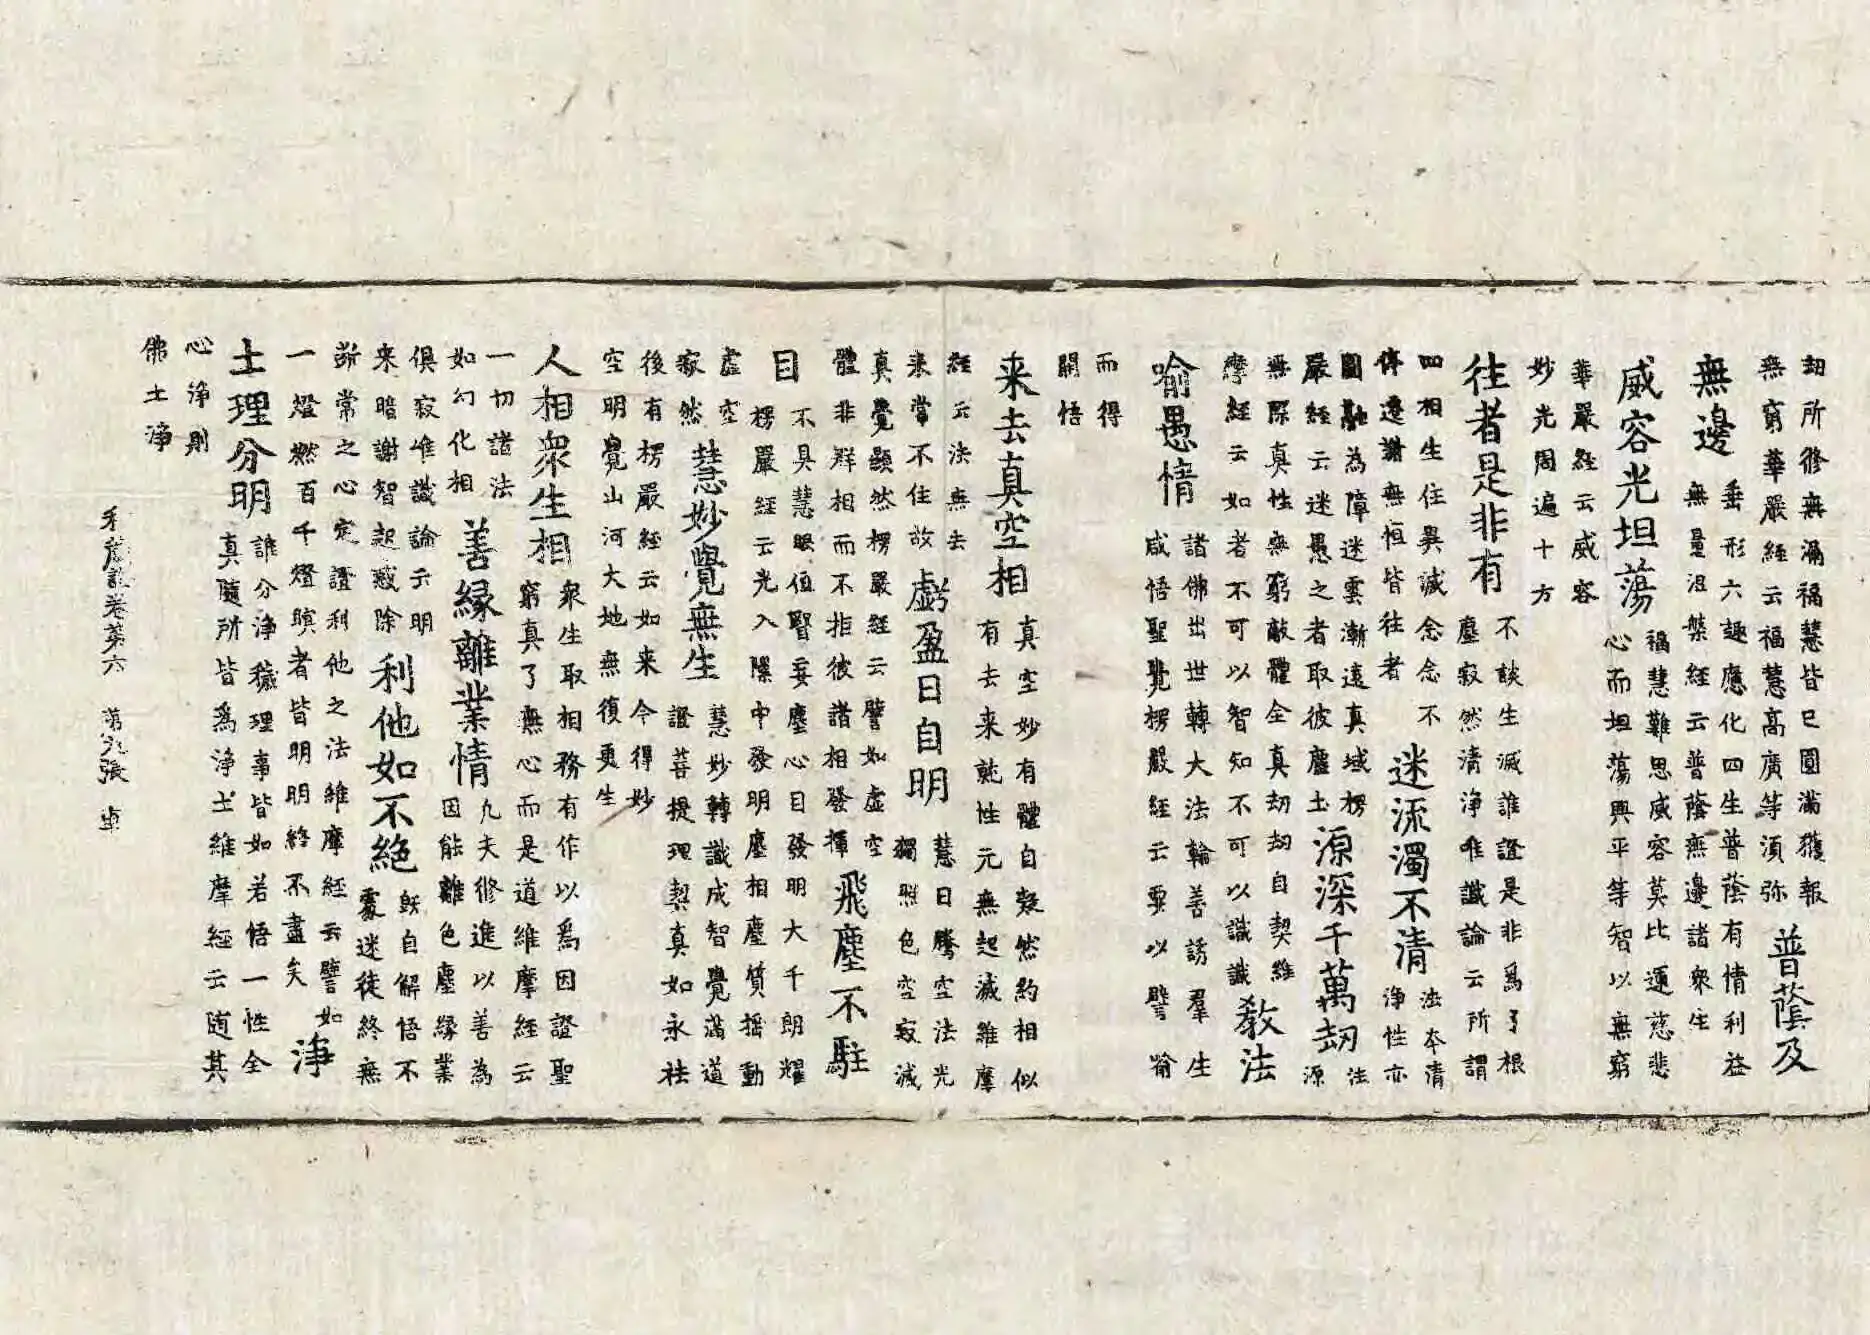 劫所修無漏福慧皆已圓滿獲報
無窮華嚴經云福慧高廣等須弥
普蔭及
無邊
垂形六趣應化四生普蔭有情利益
無量涅槃經云普蔭無邊諸衆生
威容光坦蕩
福慧難思威容莫比運慈悲
心而坦蕩興平等智以無窮
華嚴經云威容
妙光周遍十方
往者是非有
不談生滅誰證是非爲了根
塵寂然清淨唯識論云所謂
四相生住異滅念念不
停遷謝無恒皆往者
迷流濁不清
法本清
淨性亦
圓融為障迷雲漸遠真域楞
嚴經云迷愚之者取彼塵土
源深千萬劫
法
源
無際真性無窮敵體全真劫劫自契維
摩經云如者不可以智知不可以識識
教法
喻愚情
諸佛出世轉大法輪善誘羣生
咸悟聖覺楞嚴經云要以譬喻
而得
開悟
来去真空相
真空妙有體自凝然約相似
有去来就性元無起滅維摩
經云法無去
来常不住故
虧盈日自明
慧日騰空法光
獨照色空寂滅
真覺顯然楞嚴經云譬如虛空
體非群相而不拒彼諸相發揮
飛塵不駐
目
不具慧眼值賢妄塵心目發明大千朗耀
楞嚴經云光入隙中發明塵相塵質摇動
虛空
寂然
慧妙覺無生
慧妙轉識成智覺滿道
證菩提理契真如永祛
後有楞嚴經云如来今得妙
空明覺山河大地無復更生
人相衆生相
衆生取相務有作以爲因證聖
窮真了無心而是道維摩經云
一切諸法
如幻化相
善緣離業情
凡夫修進以善為
因能離色塵緣業
俱寂唯識論云明
来暗謝智起惑除
利他如不絕
既自解悟不
蒙迷徒終無
斷常之心定證利他之法維摩經云譬如
一燈燃百千燈暝者皆明明終不盡矣
淨
土理分明
誰分淨穢理事皆如若悟一性全
真隨所皆爲淨土維摩經云随其
心淨則
佛土淨
秘藏詮卷第六 第九張 車